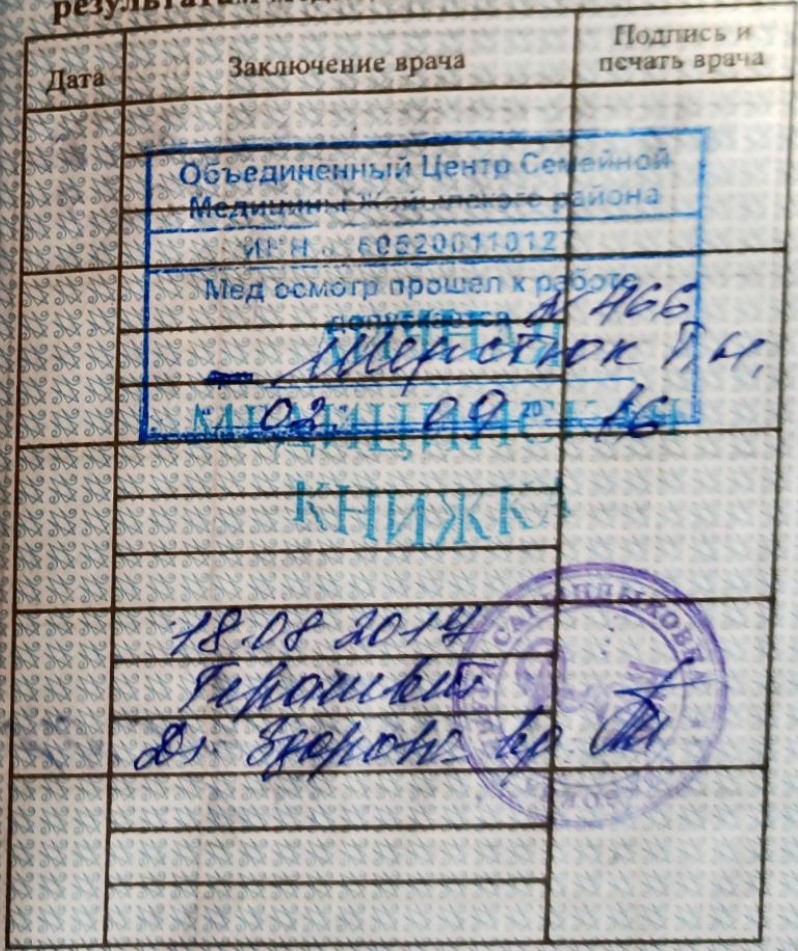 результатам
Дата
Заключение врача
Подпись и
печать врача
Объединенный Центр Семейной
Медицины Жайылского района
ИНН 60520011012
Мед осмотр прошел к работе
допускается № 466
Шерстюк Т.Н.
02. 09 20 16
МЕДИЦИНСКАЯ
КНИЖКА
18.08 2017
Терапевт
Ds. Здоров вр